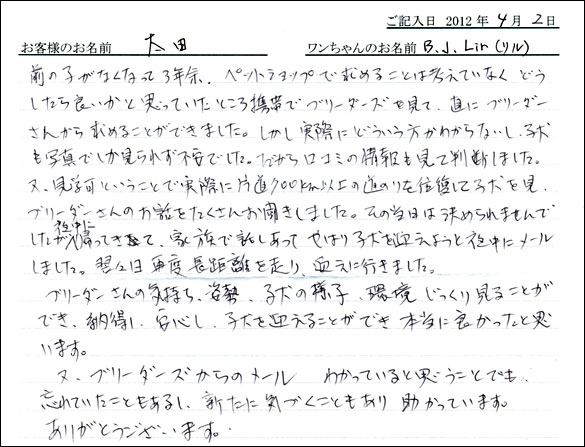 ご記入日 2012年 4月 2日
お客様のお名前 太田 ワンちゃんのお名前 B.J.Lir(リル)
前の子がなくなって3年余、ペットショップで求めることは考えていなく どう
したら良いかと思っていたところ携帯でブリーダーズを見て、直にブリーダー
さんから求めることができました。しかし実際にどういう方かわからないし、子犬
も写真でしか見られず不安でした。だから口コミの情報も見て判断しました。
又、見学可ということで実際に片道200km以上の道のりを往復して子犬を見、
ブリーダーさんのお話をたくさんお聞きしました。その当日は決められませんで
したが夜中に帰ってきて、家族で話しあって やはり子犬を迎えようと夜中にメール
しました。翌々日再度長距離を走り、迎えに行きました。
ブリーダーさんの気持ち、姿勢、子犬の様子、環境、じっくり見ることが
でき、納得し、安心し、子犬を迎えることができ 本当に良かったと思
います。
又、ブリーダーズからのメール わかっていると思うことでも、
忘れていたこともあるし、新たに気づくこともあり 助かっています。
ありがとうございます。